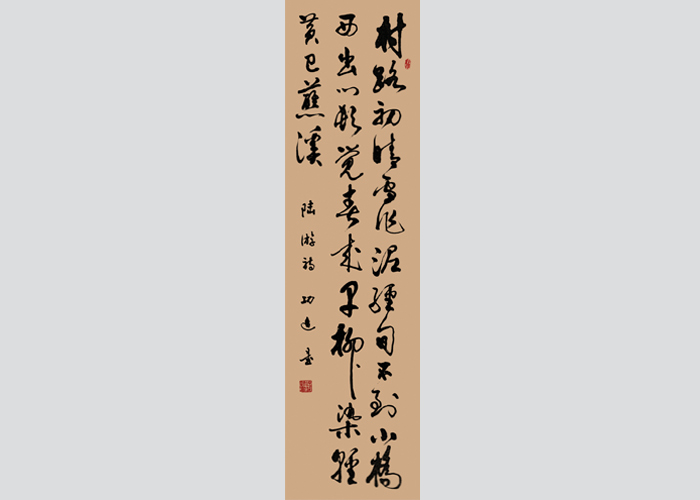 村路初晴雪作泥經旬不到小橋
西出门頓覺春來早柳染輕
黃已蘸溪
陸游詩 功 書